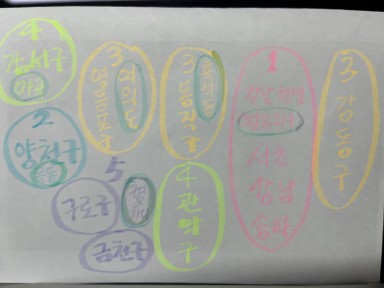 4
강서구
마곡
2
양천구
목동
3
영등포구
여의도
3
동작구
흑석동
1
서초
강남
송파
3
강동구
5
구로구
금천구
4
관악구